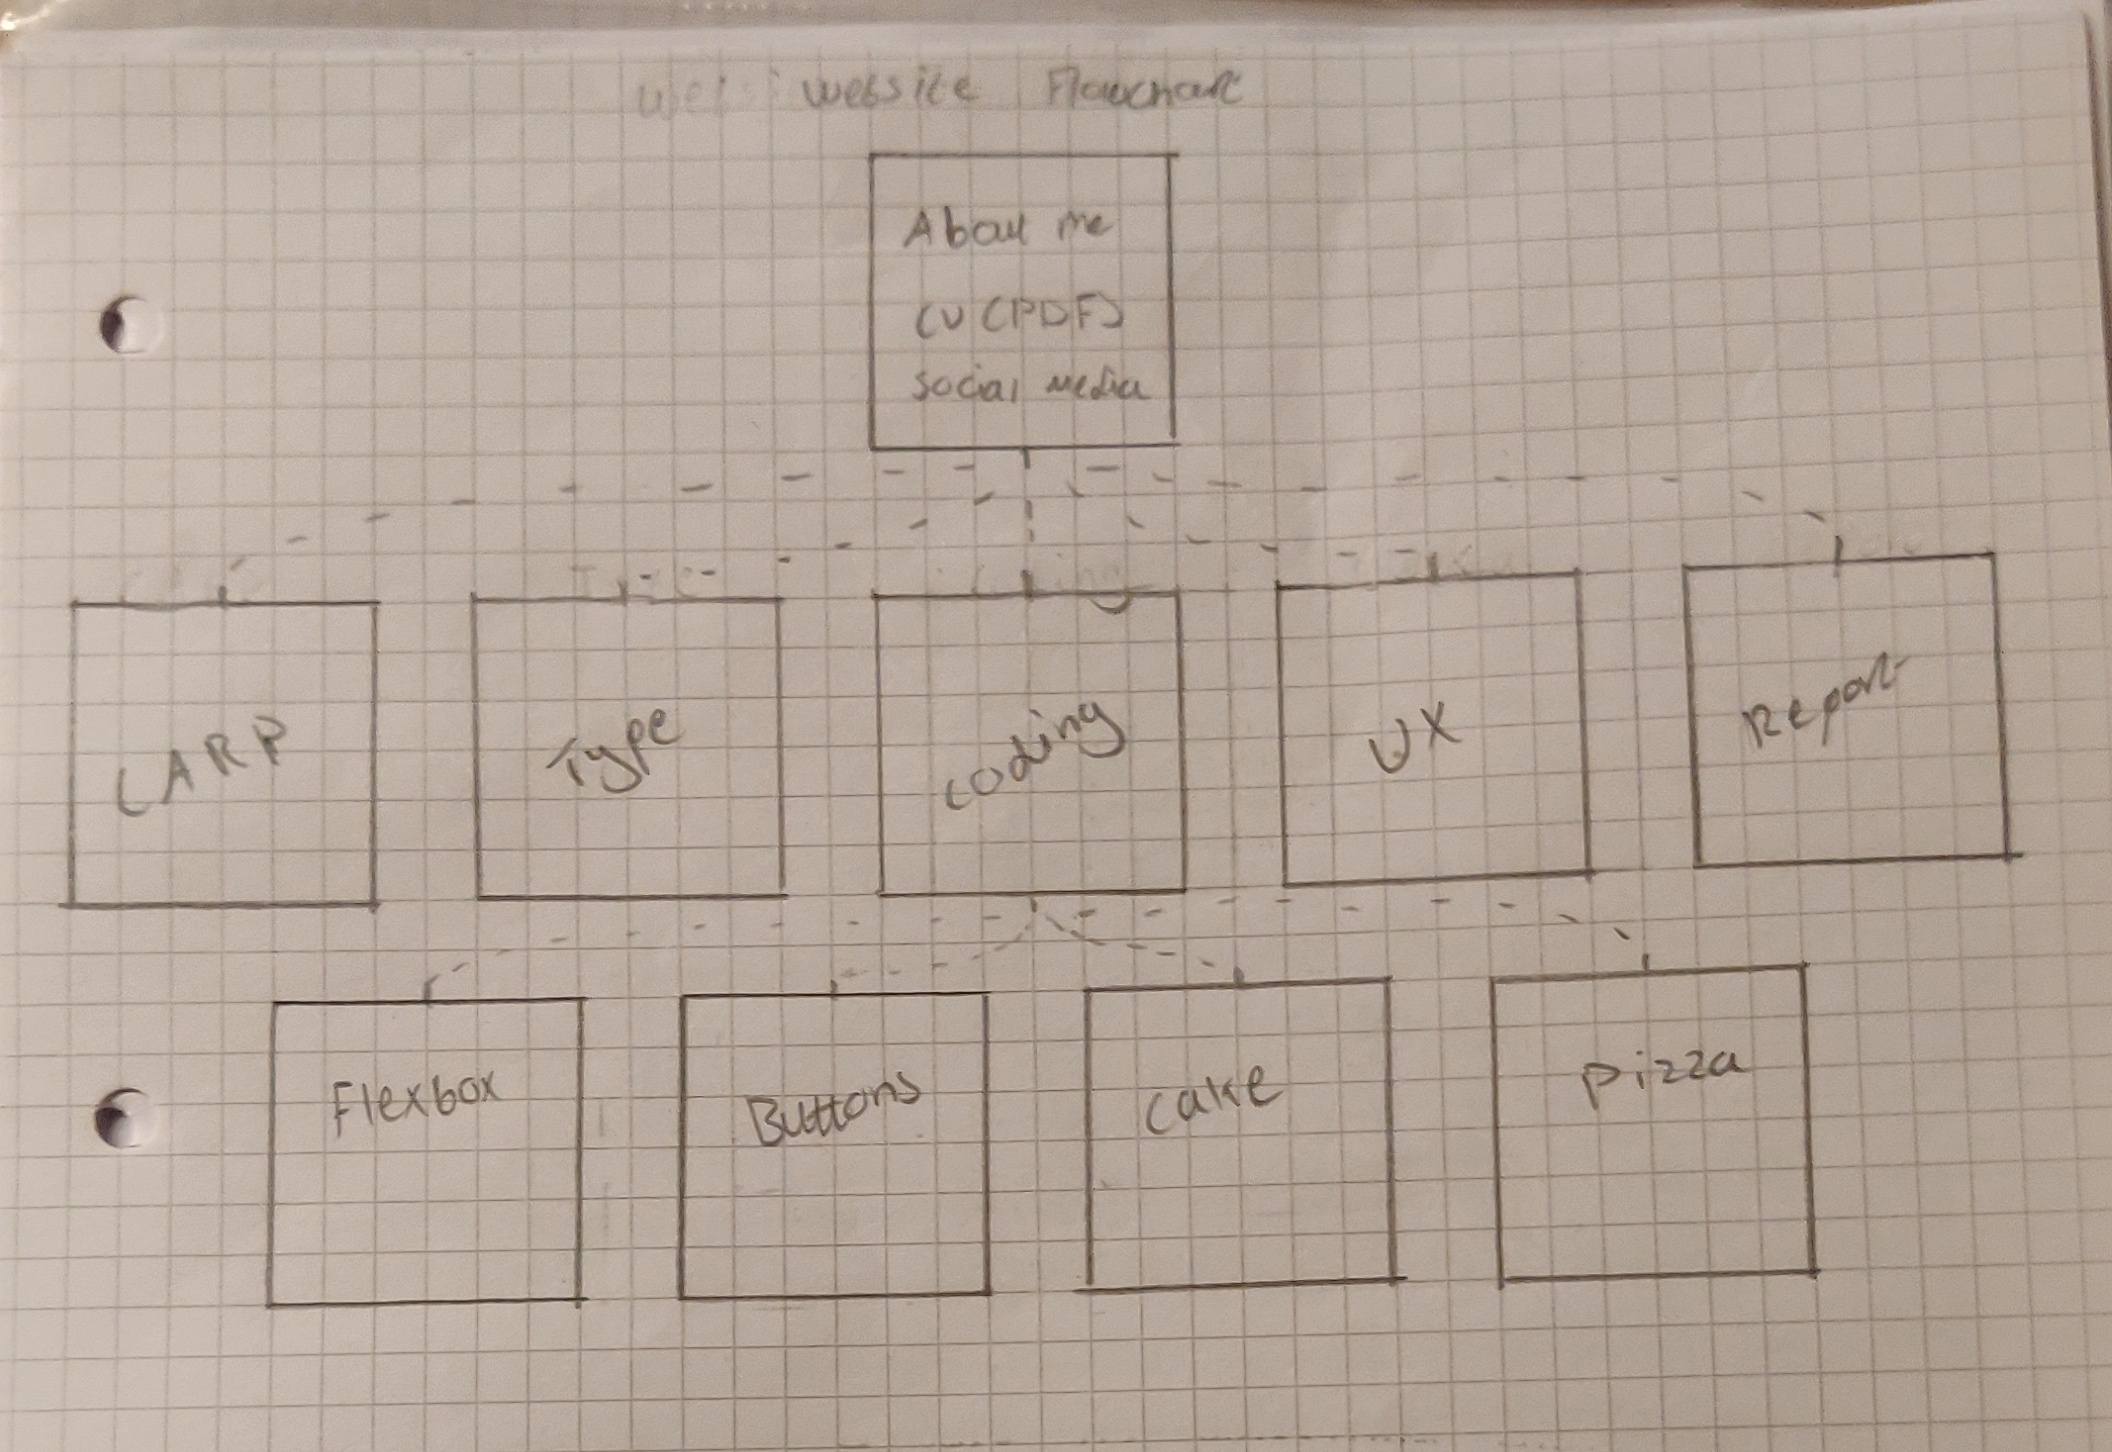 website Flowchart
About me
CV (PDF)
social media
CARP
Type
coding
UX
Report
Flexbox
Buttons
cake
pizza